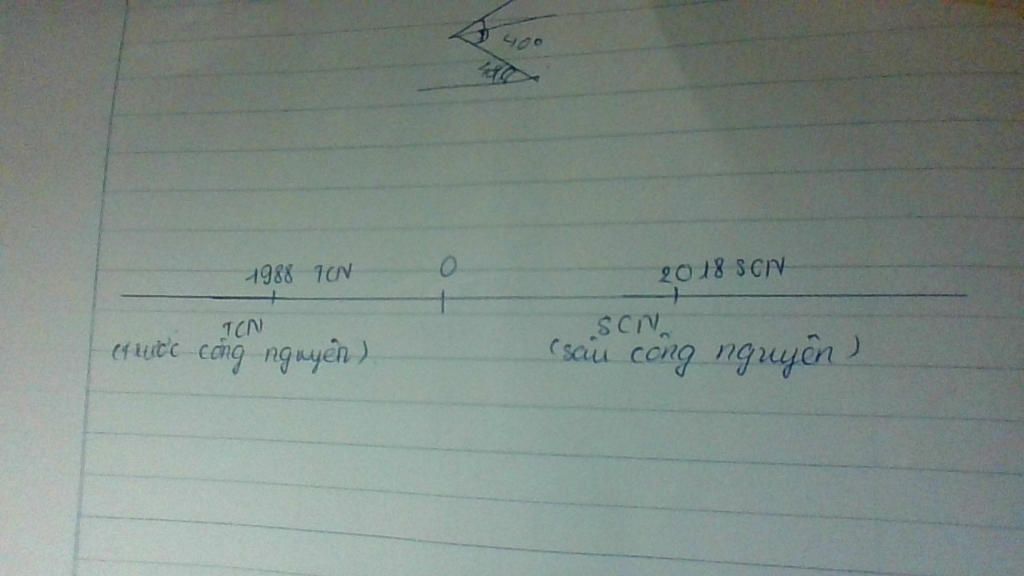 40°
1988 TCN 0 2018 SCN
TCN SCN
(trước công nguyên) (sau công nguyên)